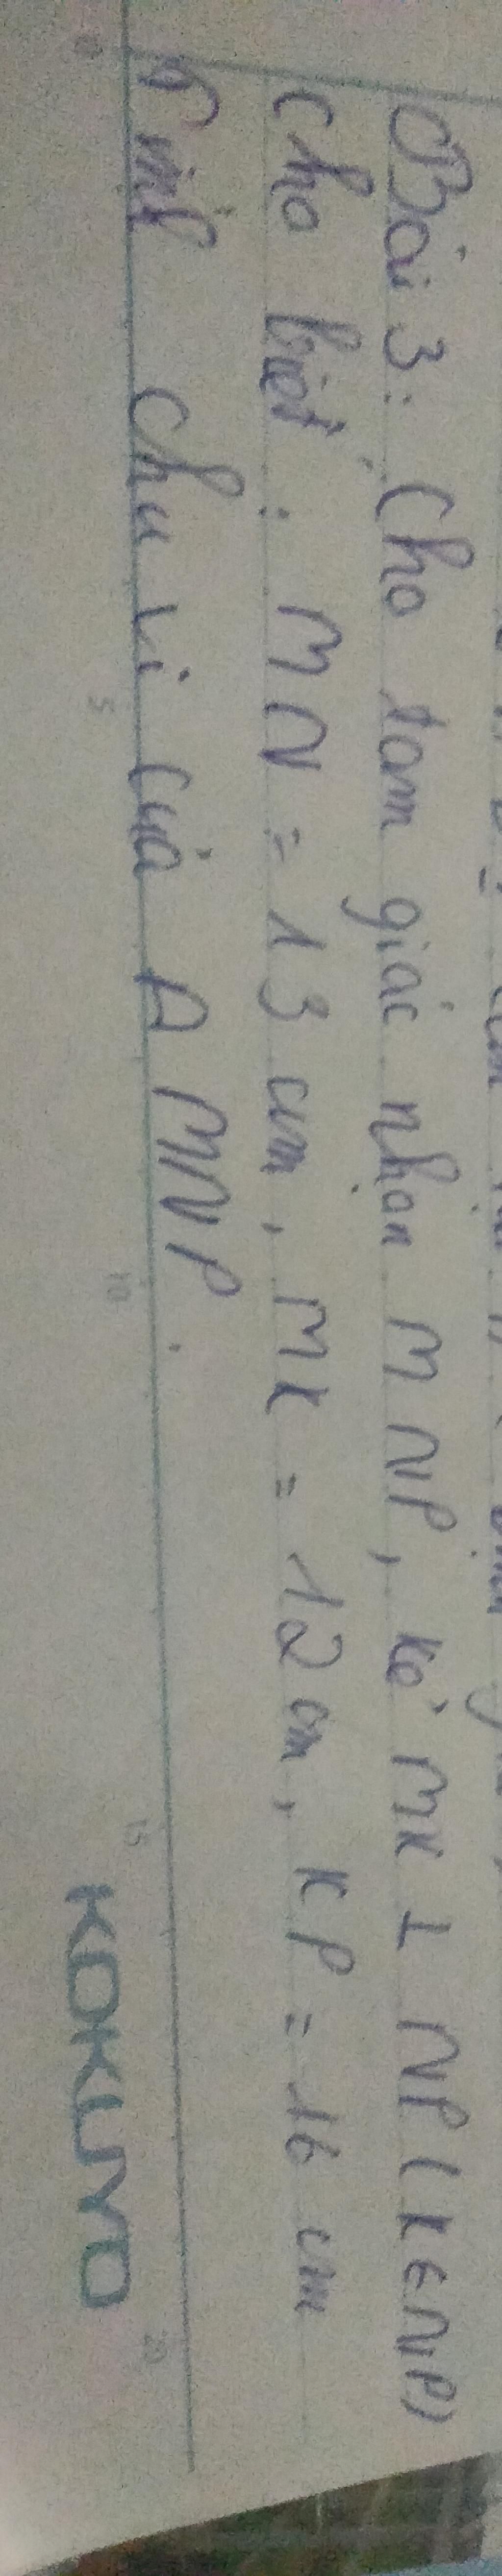 Bài 3: Cho tam giác nhọn MNP, kẻ MK ⊥ NP (K ∈ NP)
Cho biết: MN = 13 cm, MK = 12 cm, KP = 16 cm
Tính chu vi của Δ MNP.
5 10 15 20
KOKUYO